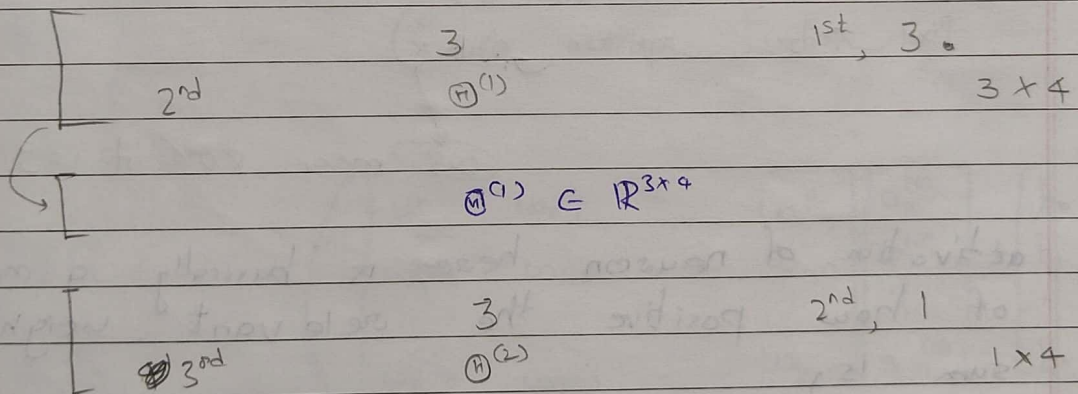 3 1st, 3.
2nd Ⓗ(1) 3 × 4
Ⓗ(1) ∈ ℝ3×4
3 2nd, 1
3rd Ⓗ(2) 1 × 4